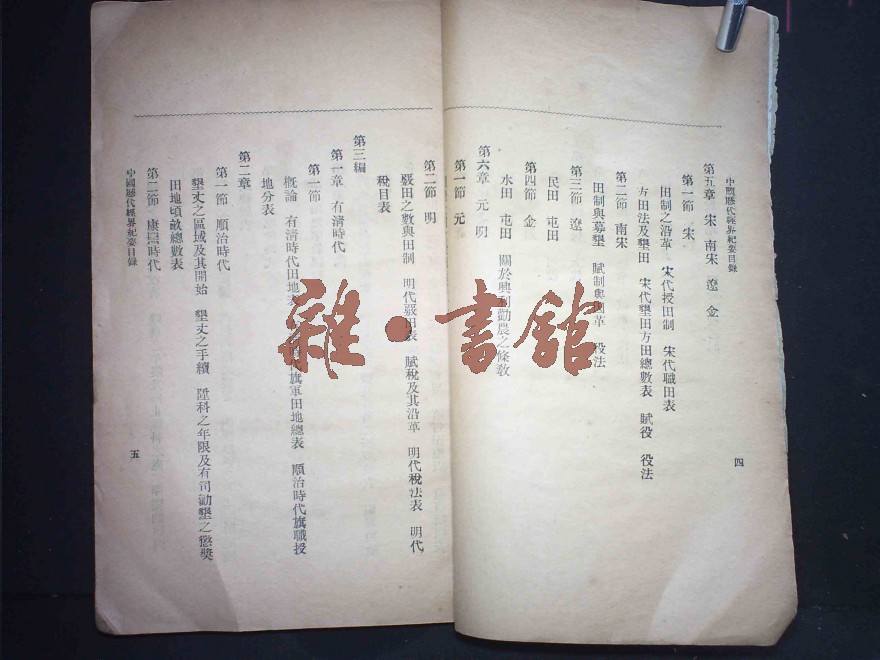 中國歷代經界紀要目錄
第五章　宋　南宋　遼　金
第一節　宋
田制之沿革　宋代授田制　宋代職田表
方田法及墾田　宋代墾田方田總數表　賦役　役法
第二節　南宋
田制與募墾　賦制與　革　役法
第三節　遼
民田　屯田
第四節　金
水田　屯田　關於興　勸農之條敎
第六章　元　明
第一節　元
四
第二節　明
覈田之數與田制　明代覈田表　賦稅及其沿革　明代稅法表　明代
稅目表
第三編
第一章　有清時代
第一節
概論　有清時代田地表　時代旗軍田地總表　順治時代旗職授
地分表
第二章
第一節　順治時代
墾丈之區域及其開始　墾丈之手續　陞科之年限及有司勸墾之懲獎
田地頃畝總數表
第二節　康熙時代
中國歷代經界紀要目錄
五
雜·書館